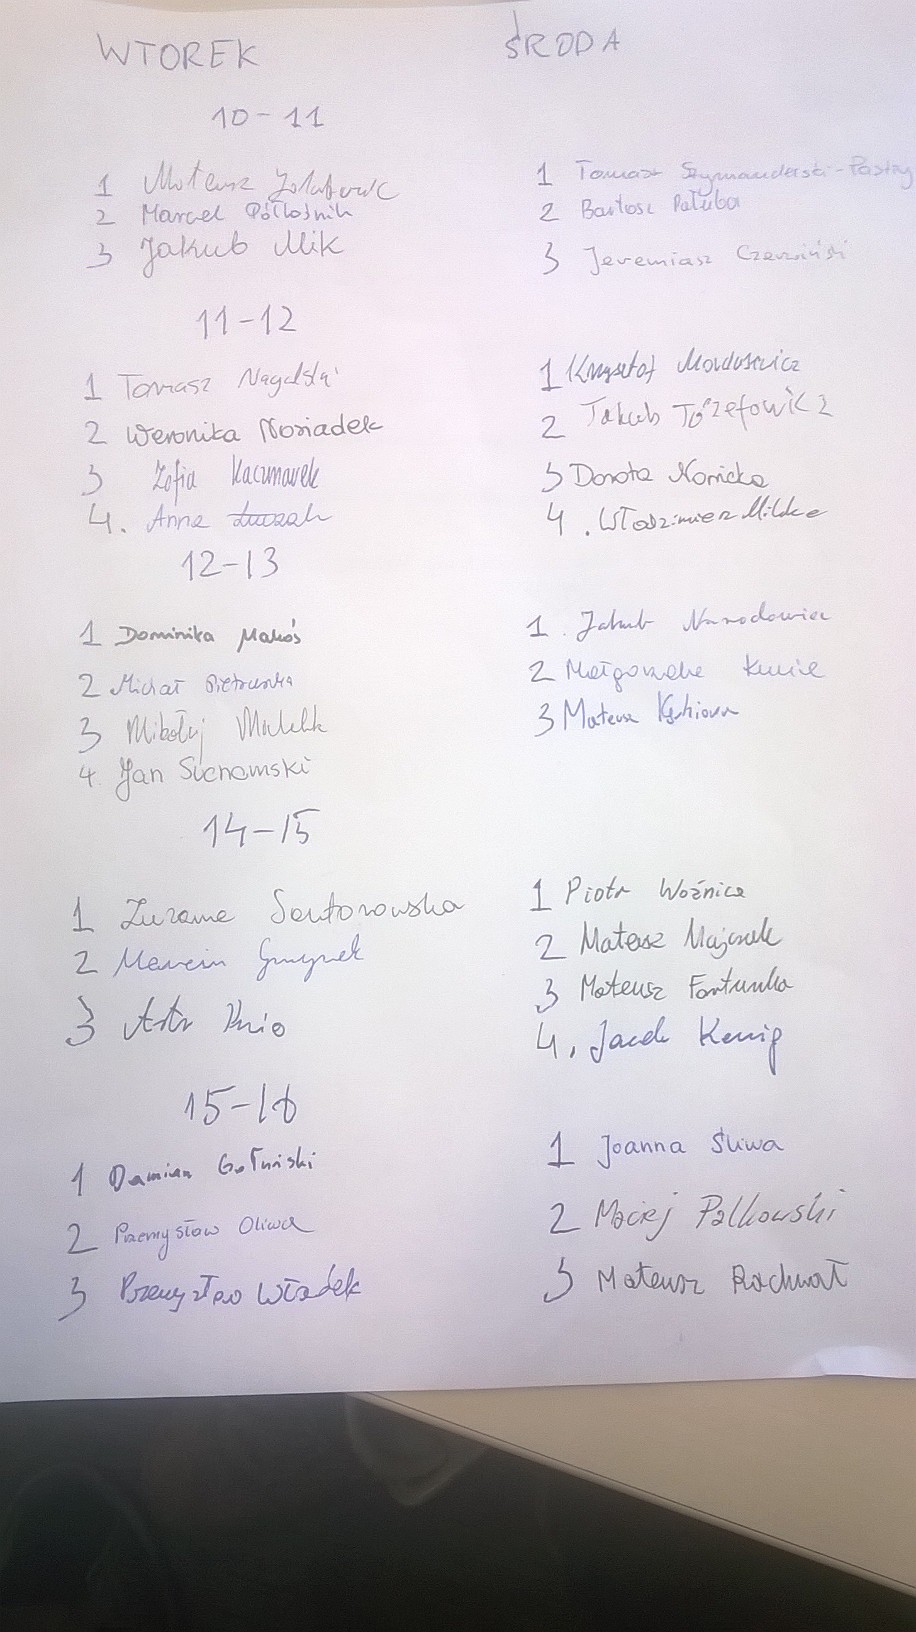 WTOREK ŚRODA
10-11
1 Mateusz
2 Marcel Półłośnik
3 Jakub Mik
1 Tomasz
2 Bartosz Pałuba
3 Jeremiasz
11-12
1 Tomasz
2 Weronika Nosiadek
3 Zofia Kaczmarek
4. Anna
1 Krzysztof Mordusewicz
2 Jakub Józefowicz
3 Dorota Nowicka
4. Włodzimierz Mildke
12-13
1 Dominika Makoś
2 Michał Pietruszka
3 Mikołaj
4. Jan Suchomski
1. Jakub Narodowiec
2 Małgorzata
3 Mateusz
14-15
1 Zuzanna Santorowska
2 Marcin
3
1 Piotr Woźnica
2 Mateusz Majcrek
3 Mateusz Fortunka
4. Jacek Kenig
15-16
1 Damian Gołuński
2 Przemysław Oliwa
3 Przemysław Władek
1 Joanna Śliwa
2 Maciej Palkowski
3 Mateusz Rachwał